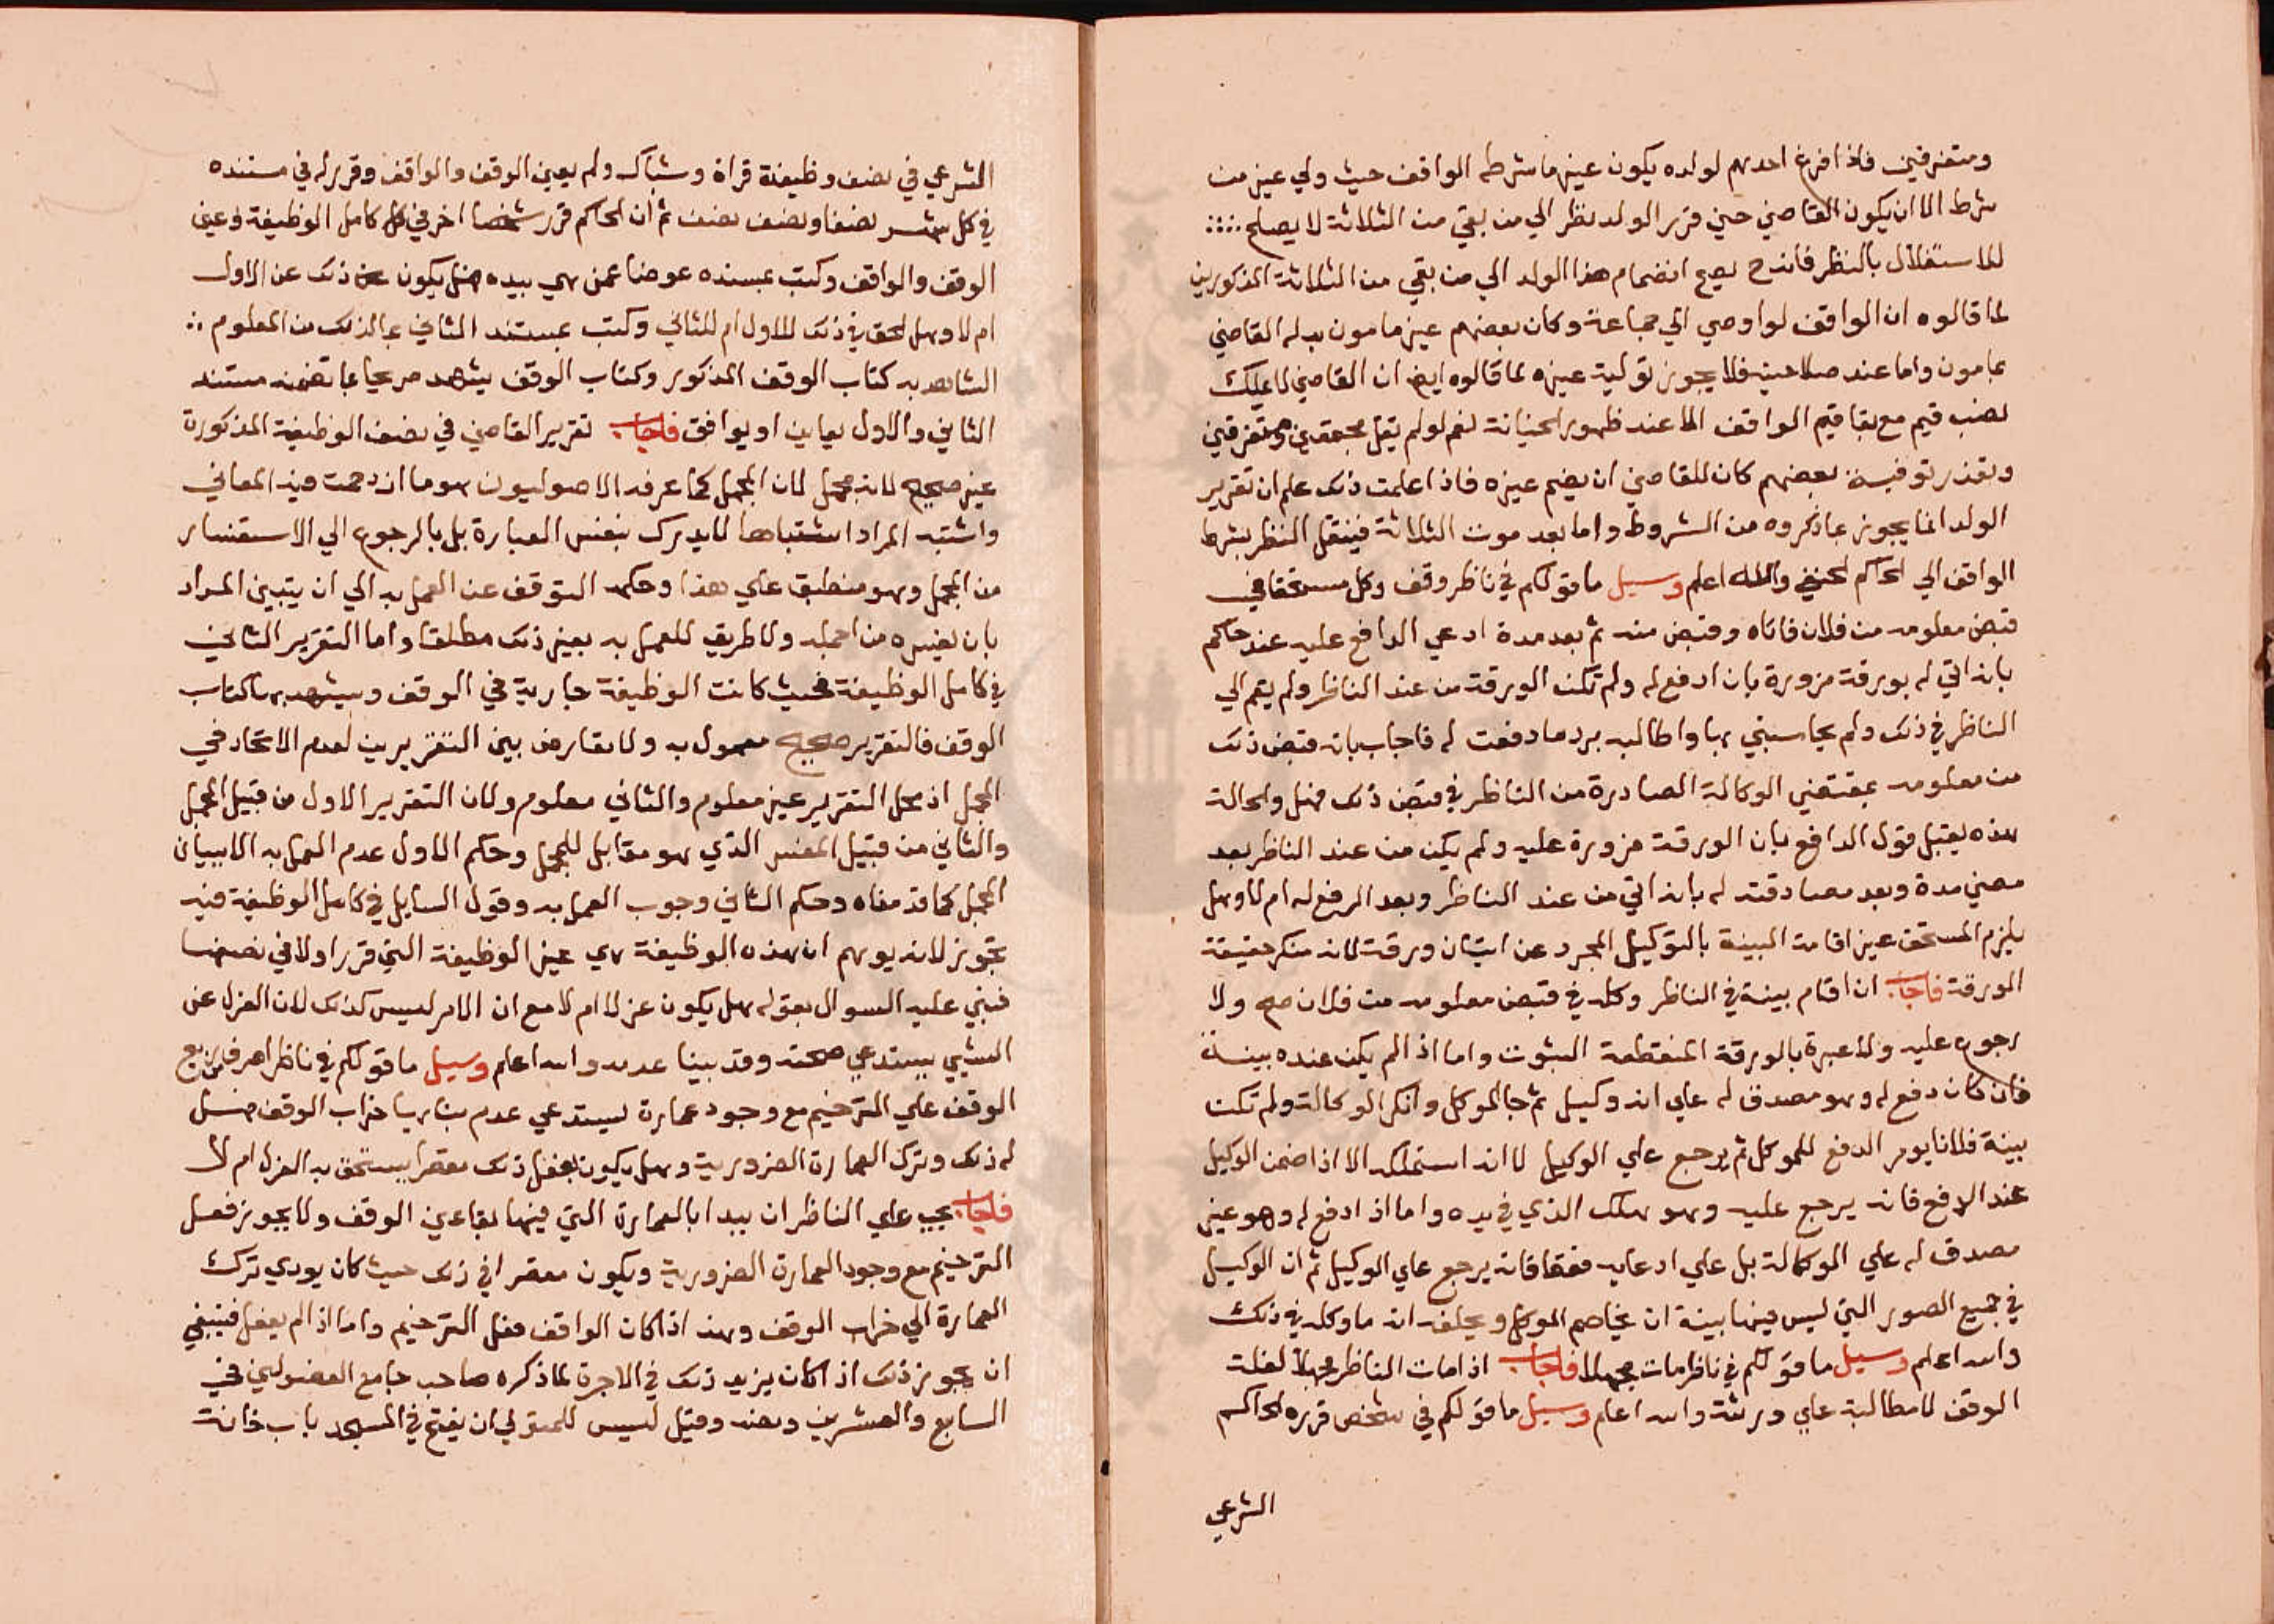 ومتفرقين فاذا فرغ احدهم لولده يكون غير ما شرطه الواقف حيث ولي غير من
شرط الا ان يكون القاضي حين قرر الولد نظر الي من بقي من الثلاثة لا يصلح
للاستقلال بالنظر فانه ح يصح انضمام هذا الولد الي من بقي من الثلاثة المذكورين
لما قالوه ان الواقف لو اوصي الي جماعة وكان بعضهم غير مامون بدله القاضي
بمامون واما عند صلاحيته فلا يجوز تولية غيره لما قالوه ايضا ان القاضي لا يملك
نصب قيم مع بقا قيم الواقف الا عند ظهور الخيانة نعم لو لم تقل مجتمعين ومتفرقين
وتعذر توفية بعضهم كان للقاضي ان يضم غيره فاذا علمت ذلك علم ان تقرير
الولد انما يجوز بما ذكروه من الشروط واما بعد موت الثلاثة فينتقل النظر بشرط
الواقف الي الحاكم الحنفي والله اعلم وسيل ما قولكم في ناظر وقف وكل مستحقا في
قبض معلومه من فلان فاتاه وقبض منه ثم بعد مدة ادعي الدافع عليه عند حاكم
بانه اتي له بورقة مزورة بان ادفع له ولم تكن الورقة من عند الناظر ولم يقم الي
الناظر في ذلك ولم يحاسبني بها واطالبه برد ما دفعت له فاجاب بانه قبض ذلك
من معلومه بمقتضي الوكالة الصادرة من الناظر في قبض ذلك فهل والحالة
هذه يقبل قول الدافع بان الورقة مزورة عليه ولم يكن من عند الناظر بعد
مضي مدة وبعد مصادقته له بانه اتي من عند الناظر وبعد الدفع له ام لا وهل
يلزم المستحق غير اقامة البينة بالتوكيل المجرد عن اتيان ورقة لانه منكر حقيقة
الورقة فاجاب ان اقام بينة في الناظر وكله في قبض معلومه من فلان صح ولا
رجوع عليه ولا عبرة بالورقة المنقطعة الثبوت واما اذا لم يكن عنده بينة
فان كان دفع له وهو مصدق له علي انه وكيل ثم جا الموكل وانكر الوكالة ولم تكن
بينة فلانا يومر الدفع للموكل ثم يرجع علي الوكيل لا ان استملكه الا اذا ضمن الوكيل
عند الدفع فانه يرجع عليه وهو هلك الذي في يده واما اذا دفع له وهو غير
مصدق له علي الوكالة بل علي ادعايه فقط فانه يرجع علي الوكيل ثم ان الوكيل
في جميع الصور التي ليس فيها بينة ان يخاصم الموكل ويحلفه انه ما وكله في ذلك
والله اعلم وسيل ما قولكم في ناظر مات مجهلا فاجاب اذا مات الناظر مجهلا لغلة
الوقف لا مطالبة علي ورثته والله اعلم وسيل ما قولكم في شخص قرره الحاكم
الشرعي
الشرعي في نصف وظيفة قراة وشباك ولم يعين الوقف والواقف وقرر له في مستنده
في كل شهر نصفا ونصف نصف ثم ان الحاكم قرر شخصا اخر في كامل الوظيفة وعين
الوقف والواقف وكتب بمسنده عوضا عمن هي بيده فهل يكون ذلك عن الاول
ام لا وهل الحق في ذلك للاول ام للثاني وكتب بمستند الثاني بما لذلك من المعلوم
الشاهد به كتاب الوقف المذكور وكتاب الوقف يشهد صريحا بما تضمنه مستند
الثاني والاول يعاين او يوافق فاجاب تقرير القاضي في نصف الوظيفة المذكورة
غير صحيح لانه مجهل لان المجمل كما عرفه الاصوليون هو ما ازدحمت فيه المعاني
واشتبه المراد اشتباها لا يدرك بنفس العبارة بل بالرجوع الي الاستفسار
من المجمل وهو منطبق علي هذا وحكمه التوقف عن العمل به الي ان يتبين المراد
بان يفسره من اجمله ولا طريق للعمل به بغير ذلك مطلقا واما التقرير الثاني
في كامل الوظيفة فحيث كانت الوظيفة جارية في الوقف ويشهد بها كتاب
الوقف فالتقرير صحيح معمول به ولا تعارض بين التقريرين لعدم الاتحاد في
المحل اذ محل التقرير غير معلوم والثاني معلوم ولان التقرير الاول من قبيل المجمل
والثاني من قبيل المفسر الذي هو مقابل للمجمل وحكم الاول عدم العمل به الا ببيان
المجمل كما قدمناه وحكم الثاني وجوب العمل به وقول السايل في كامل الوظيفة فيه
تجوز لانه يوهم ان هذه الوظيفة هي عين الوظيفة التي قرر اولا في نصفها
فبني عليه السوال بقوله هل يكون عزلا ام لا مع ان الامر ليس كذلك لان العزل عن
الشي يستدعي صحته وقد بينا عدمه والله اعلم وسيل ما قولكم في ناظر اصرف من ريع
الوقف علي الترخيم مع وجود عمارة يستدعي عدم بنايها خراب الوقف فهل
له ذلك وترك العمارة الضرورية وهل يكون بفعل ذلك مقصرا يستحق به العزل ام لا
فاجاب يجب علي الناظر ان يبدا بالعمارة التي فيها بقا عين الوقف ولا يجوز فعل
الترخيم مع وجود العمارة الضرورية ويكون مقصرا في ذلك حيث كان يودي ترك
العمارة الي خراب الوقف وهذا اذا كان الواقف فعل الترخيم واما اذا لم يفعل فينبغي
ان يجوز ذلك اذا كان يزيد ذلك في الاجرة لما ذكره صاحب جامع الفصولين في
السابع والعشرين ونصه وقيل ليس للمتولي ان يفتح في المسجد باب خانة